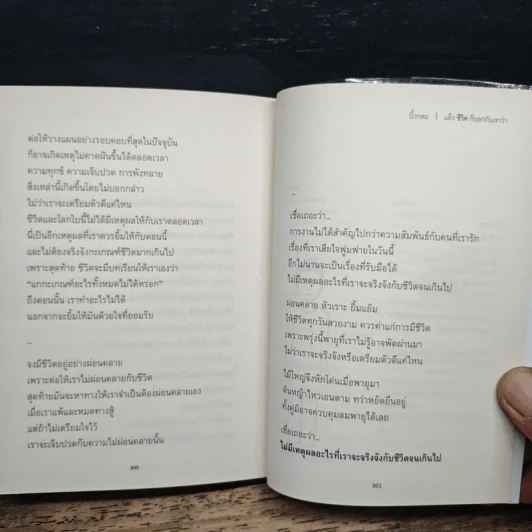 ต่อให้วางแผนอย่างรอบคอบที่สุดในปัจจุบัน
ก็อาจเกิดเหตุไม่คาดฝันขึ้นได้ตลอดเวลา
ความทุกข์ ความเจ็บปวด การพังทลาย
สิ่งเหล่านี้เกิดขึ้นโดยไม่บอกกล่าว
ไม่ว่าเราจะเตรียมตัวดีแค่ไหน
ชีวิตและโลกใบนี้ไม่ได้มีเหตุผลให้กับเราตลอดเวลา
นี่เป็นอีกเหตุผลที่เราควรยิ้มให้กับตอนนี้
และไม่ต้องจริงจังกะเกณฑ์ชีวิตมากเกินไป
เพราะสุดท้าย ชีวิตจะมีบทเรียนให้เราเองว่า
"แกกะเกณฑ์อะไรทั้งหมดไม่ได้หรอก"
ถึงตอนนั้น เราทำอะไรไม่ได้
นอกจากจะยิ้มให้มันด้วยใจที่ยอมรับ
–
จงมีชีวิตอยู่อย่างผ่อนคลาย
เพราะต่อให้เราไม่ผ่อนคลายกับชีวิต
สุดท้ายมันจะหาทางให้เราจำเป็นต้องผ่อนคลายเอง
เมื่อเราแพ้และหมดทางสู้
แต่ถ้าไม่เตรียมใจไว้
เราจะเจ็บปวดกับความไม่ผ่อนคลายนั้น
300
นิ้วกลม | แล้ว ชีวิต ก็บอกกับเราว่า
–
เชื่อเถอะว่า...
การงานไม่ได้สำคัญไปกว่าความสัมพันธ์กับคนที่เรารัก
เรื่องที่เราเสียใจฟูมฟายในวันนี้
อีกไม่นานจะเป็นเรื่องที่รับมือได้
ไม่มีเหตุผลอะไรที่เราจะจริงจังกับชีวิตจนเกินไป
ผ่อนคลาย หัวเราะ ยิ้มแย้ม
ให้ชีวิตทุกวันสวยงาม ควรค่าแก่การมีชีวิต
เพราะพรุ่งนี้พายุที่ไม่รู้อาจพัดผ่านมา
ไม่ว่าเราจะจริงจังหรือเตรียมตัวดีแค่ไหน
ไม้ใหญ่จึงหักโค่นเมื่อพายุมา
ต้นหญ้าไหวเอนตาม ทว่าหยัดยืนอยู่
ทั้งคู่มิอาจควบคุมลมพายุได้เลย
เชื่อเถอะว่า...
ไม่มีเหตุผลอะไรที่เราจะจริงจังกับชีวิตจนเกินไป
301